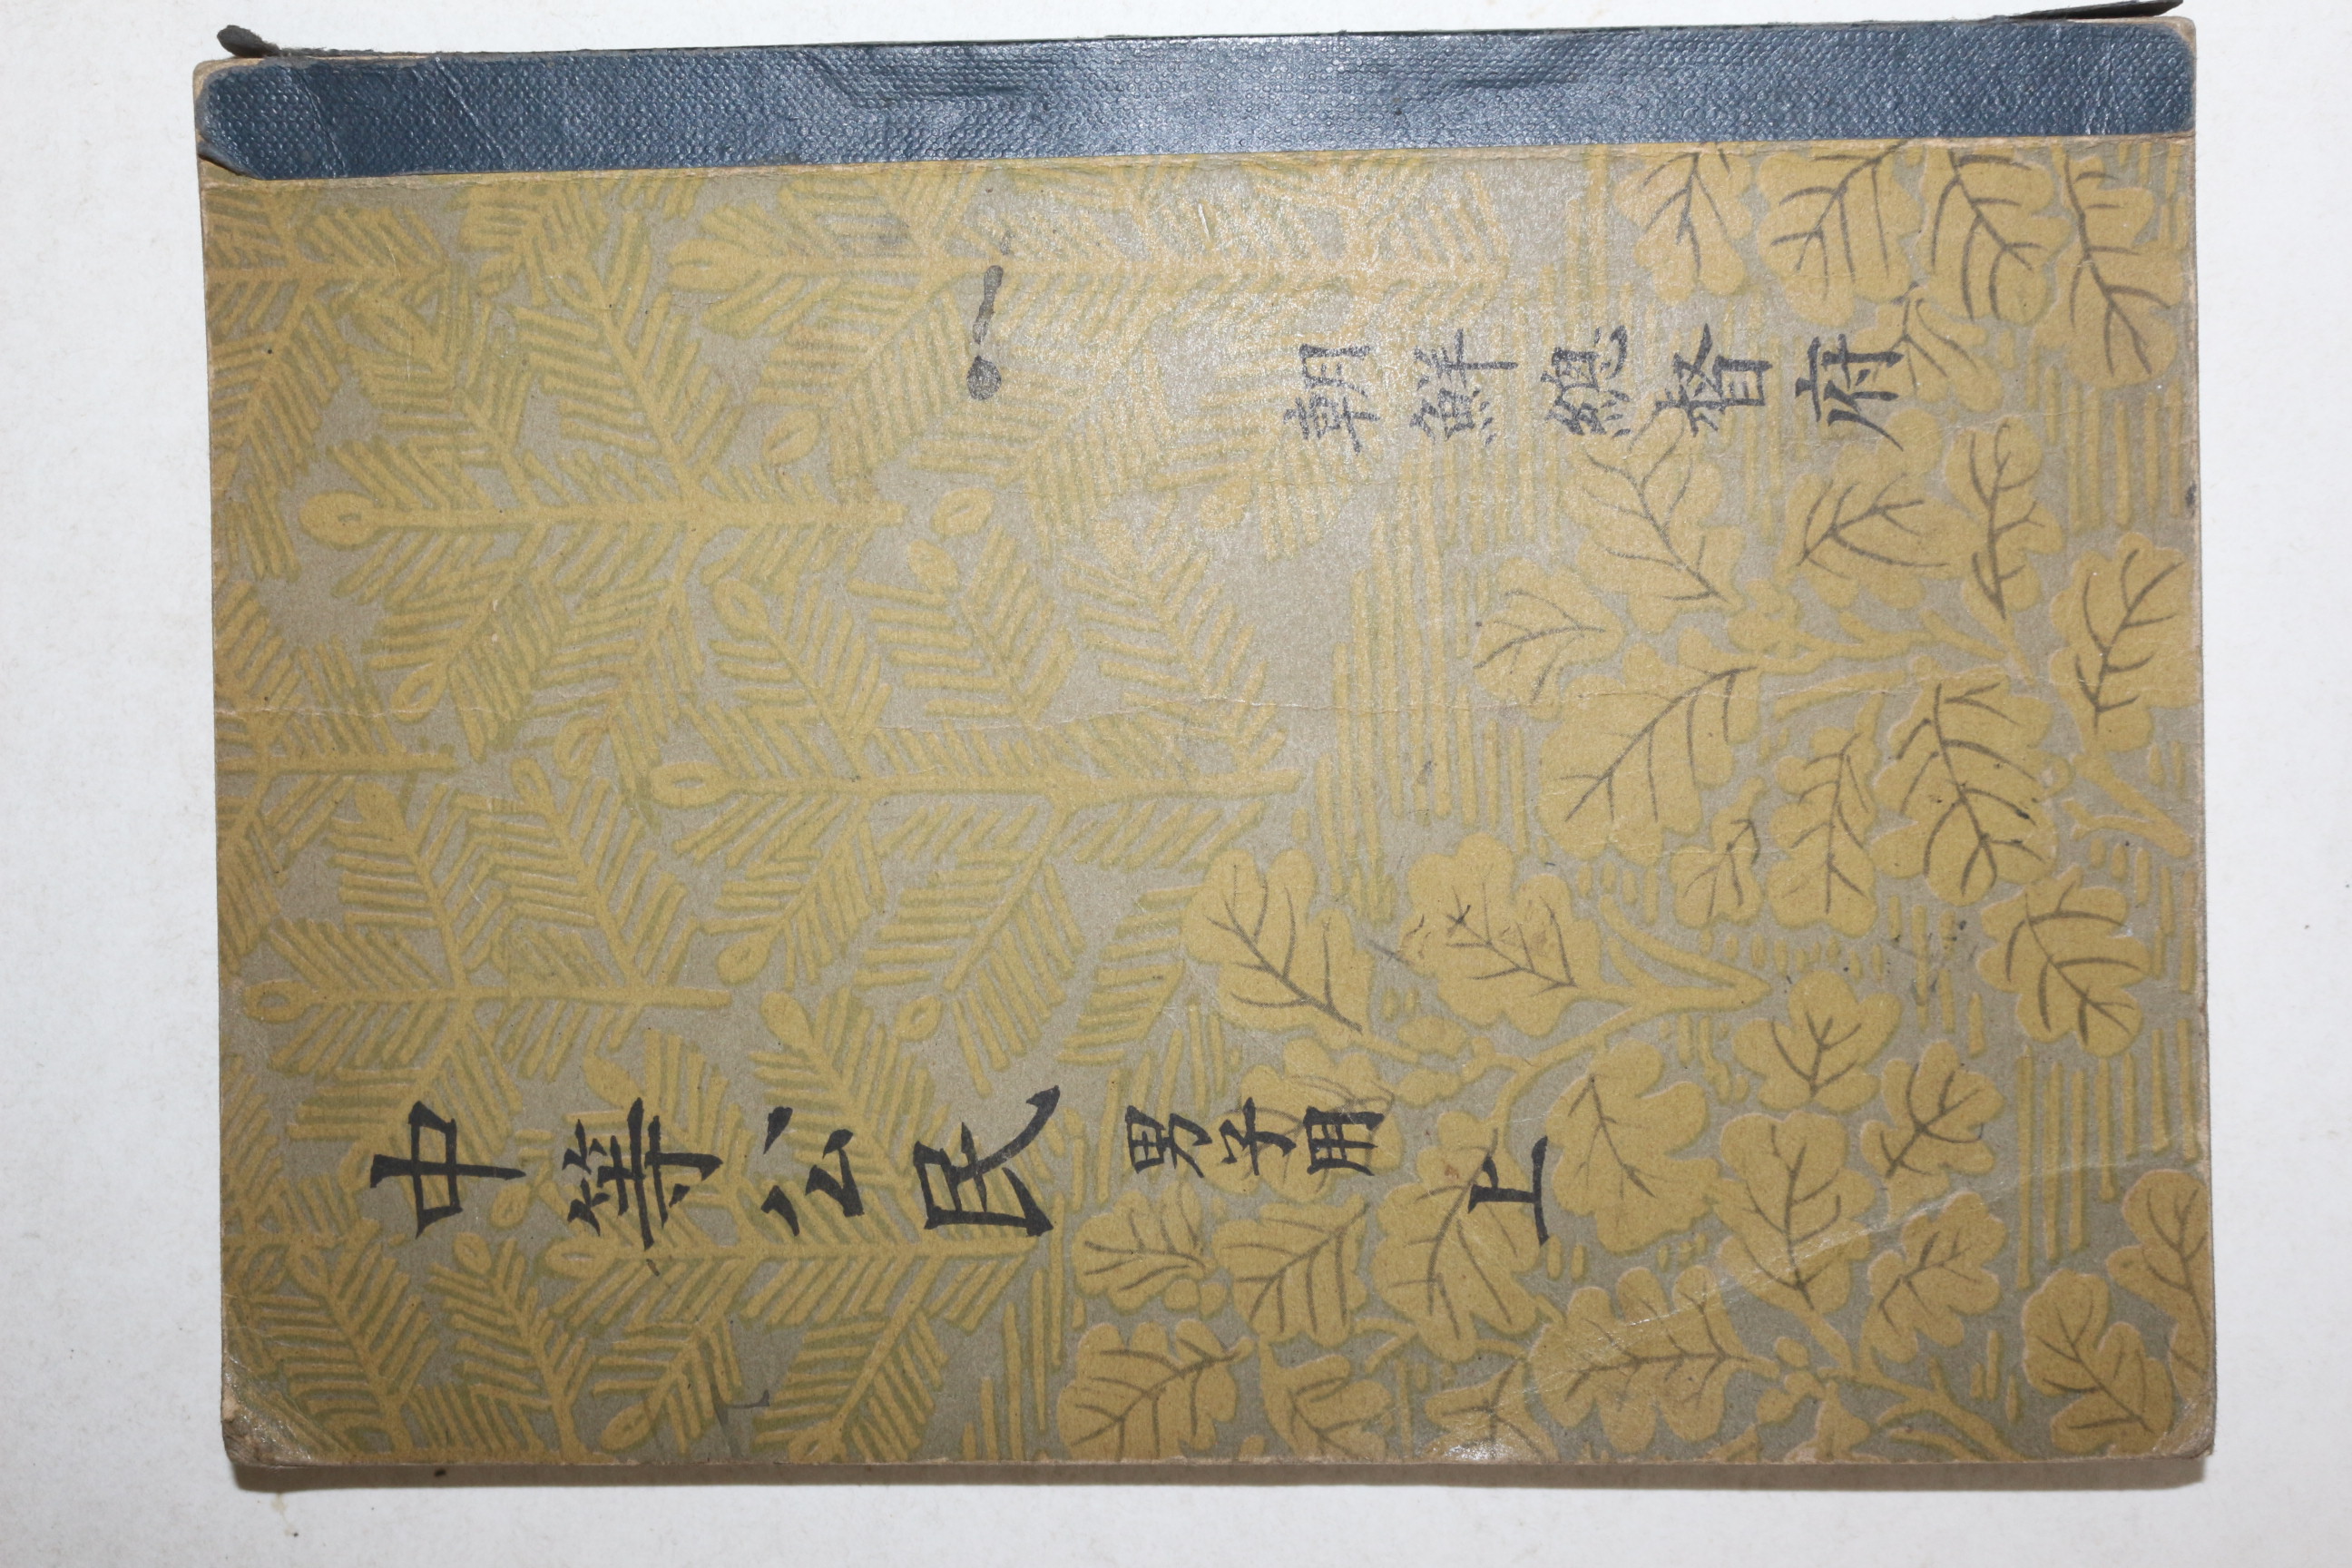 中等公民 男子用 上
朝鮮總督府